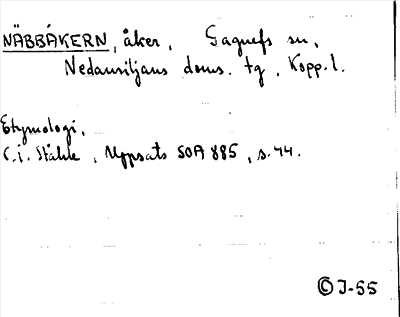 NÄBBÅKERN, åker, Gagnefs sn,
Nedansiljans doms. tg, Kopp. l.
Etymologi,
C.I. Ståhle, Uppsats SOA 885, s. 44.
© J-55